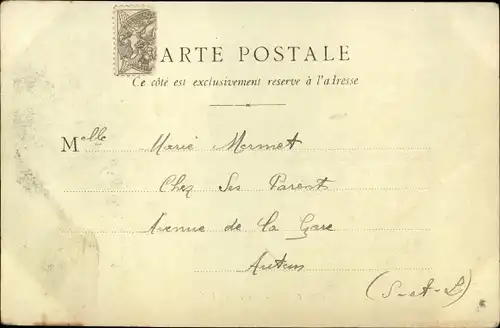 CARTE POSTALE
Ce côté est exclusivement reserve à l'adresse
Melle Marie Mermet
Chez Ses Parent
Avenue de La Gare
Autun
(S-et-L)